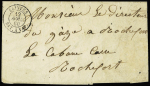 Monsieur le Directeur
du gaz à Rochefort
La Cabane Carrée
Rochefort